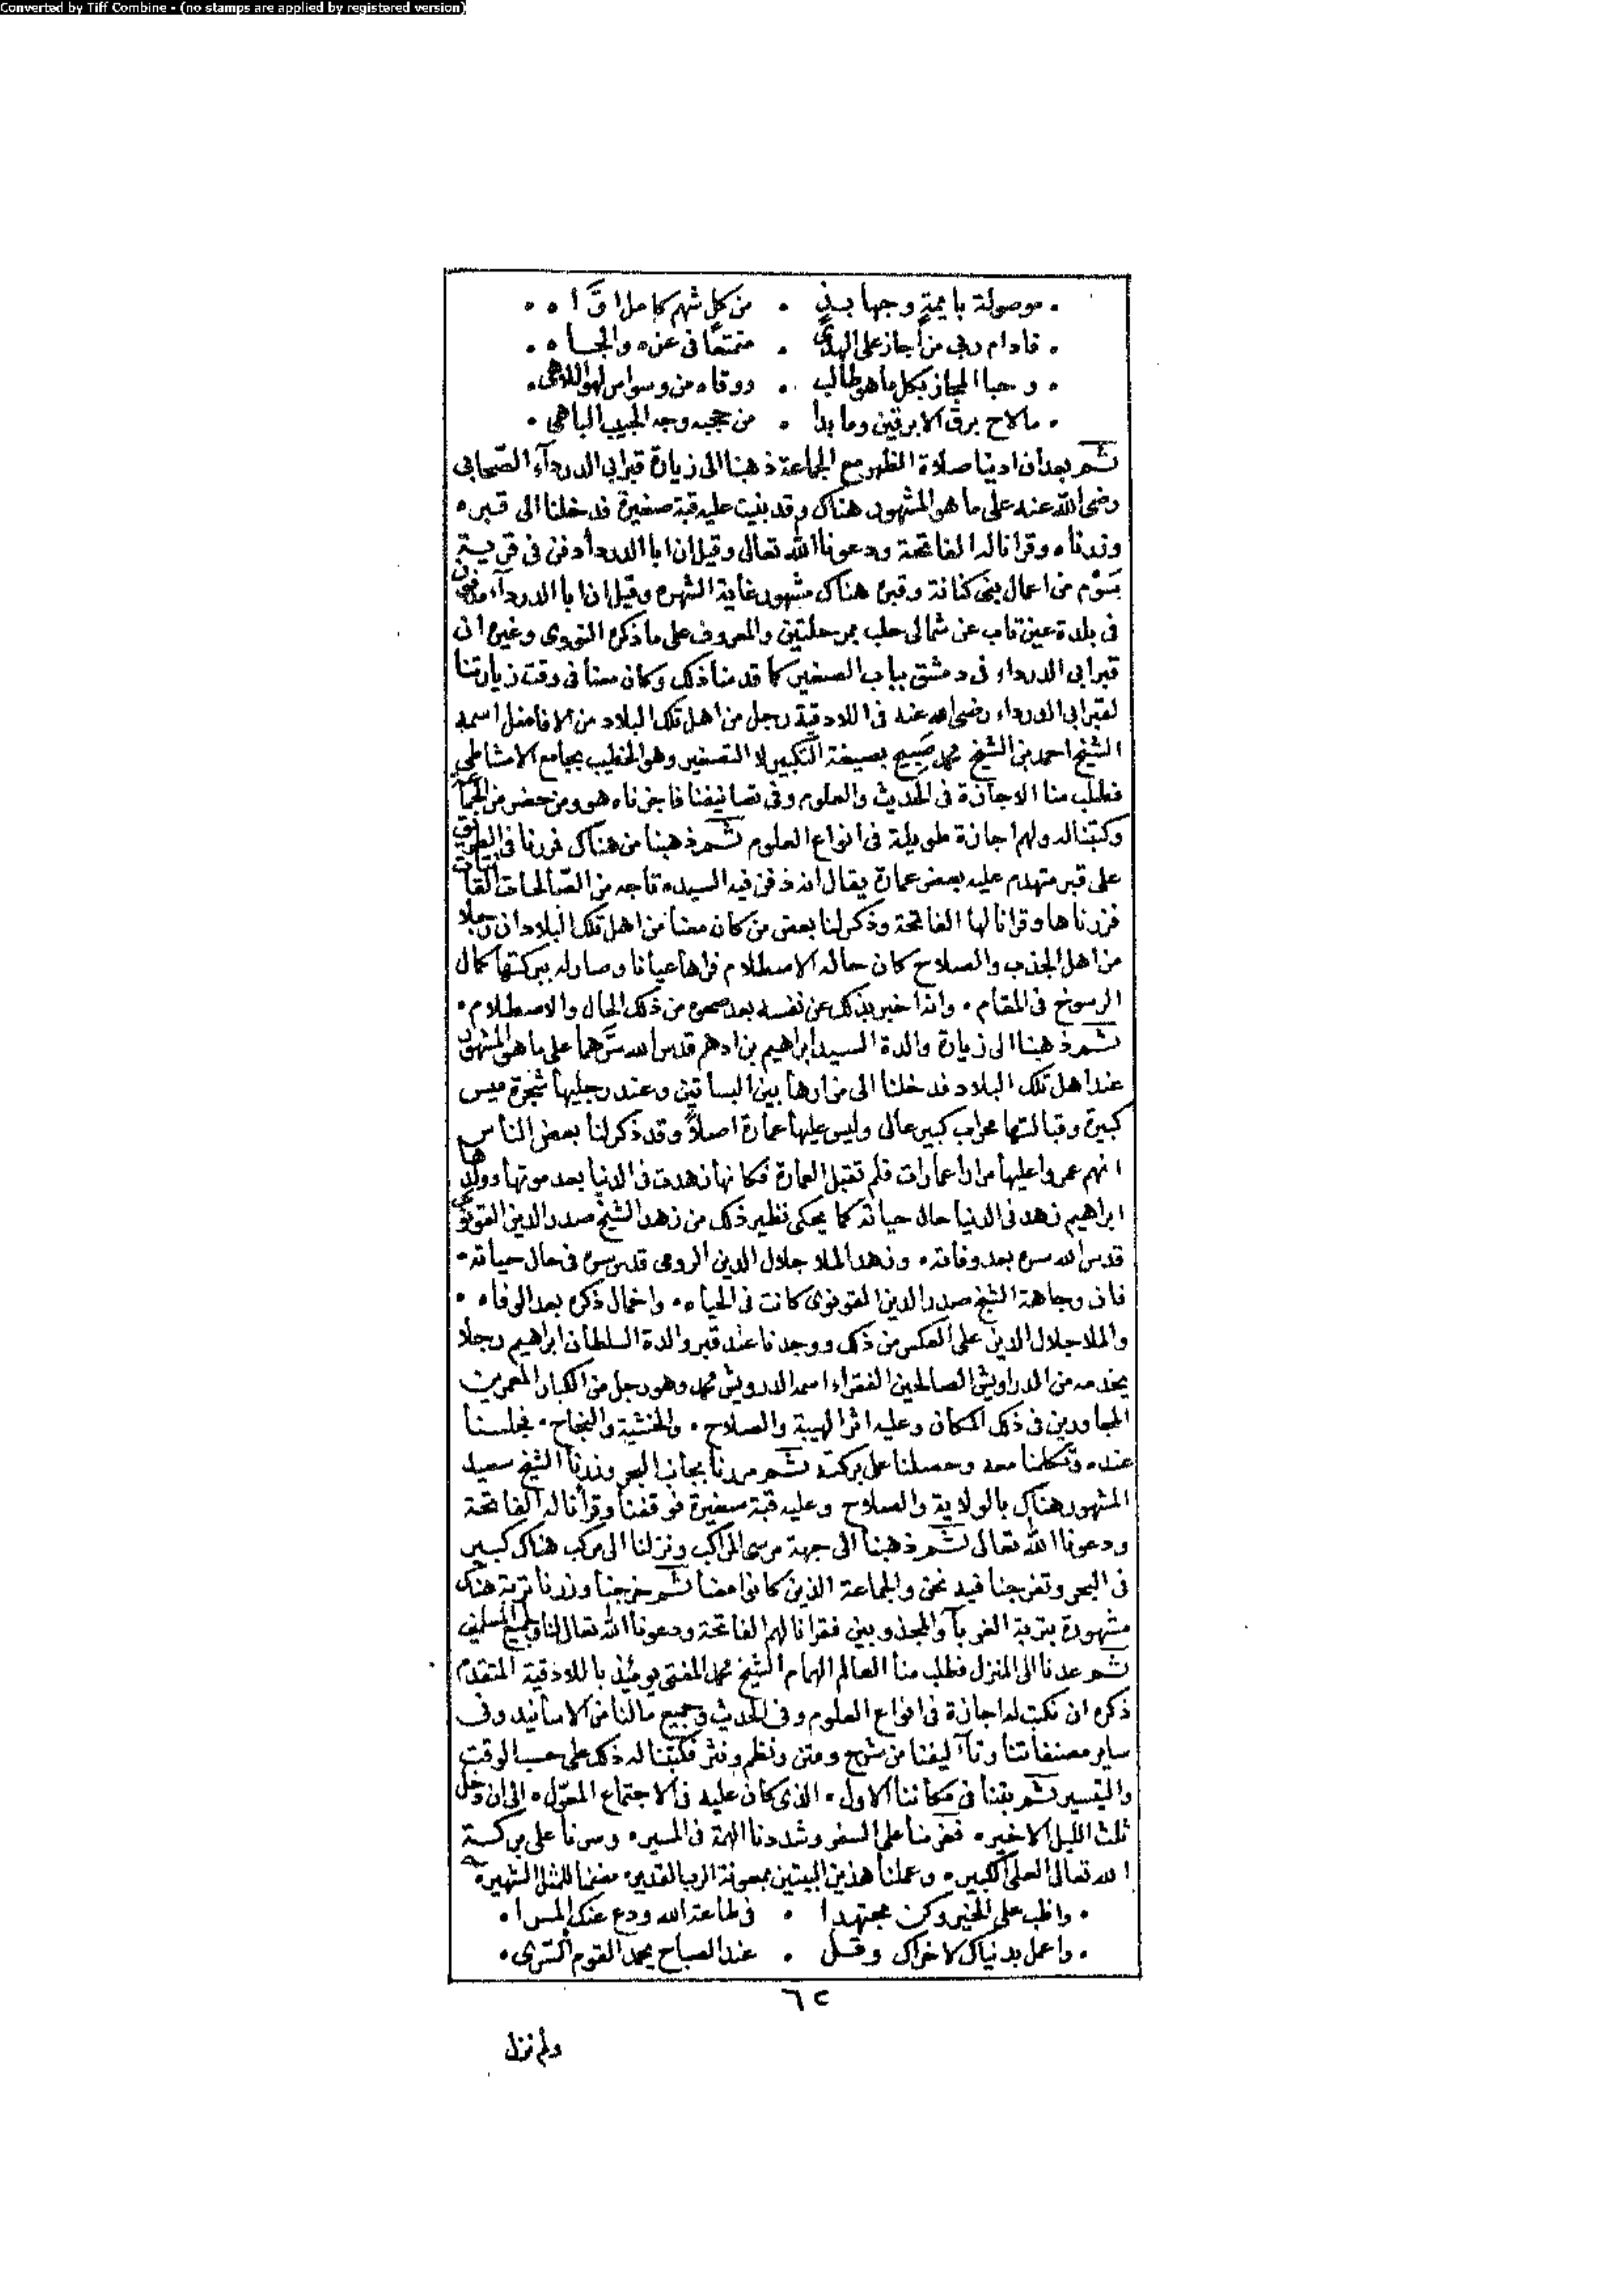 Converted by Tiff Combine - (no stamps are applied by registered version)
موصولة بايمة وجهابذ . من كل شهم كامل اوّاه
فادام ربى من اجاز على الهدى . متمتعا فى عزه والجاه
وحبا المجاز بكل ما هو طالب . ووقاه من وسواس لهو اللاهى
مالاح برق الابرقين وما بدا . من حجبه وجه الحبيب الباهى
ثم بعد ان ادينا صلاة الظهر مع الجماعة ذهبنا الى زيارة قبر ابى الدرداء الصحابى
رضى الله عنه على ما هو المشهور هناك وقد بنيت عليه قبة صغيرة فدخلنا الى قبره
وزرناه وقرانا له الفاتحة ودعونا الله تعالى وقيل ان ابا الدرداء دفن فى قرية
من اعمال بنى كنانة وقبره هناك مشهور غاية الشهرة وقيل ان ابا الدرداء مدفون
فى بلدة عين تاب عن شمالى حلب بمرحلتين والمعروف على ما ذكره النووى وغيره ان
قبر ابى الدرداء فى دمشق بباب الصغير كما قدمنا ذلك وكان معنا فى وقت زيارتنا
لقبر ابى الدرداء رضى الله عنه فى اللاذقية رجل من اهل تلك البلاد من الافاضل اسمه
الشيخ احمد بن الشيخ محمد صبيح بصيغة التكبير لا التصغير وهو الخطيب بجامع الامشاطى
فطلب منا الاجازة فى الحديث والعلوم وفى تصانيفنا فاجزناه هو ومن حضر من الجماعة
وكتبنا له ولهم اجازة طويلة فى انواع العلوم ثم ذهبنا من هناك فزرنا فى الطريق
على قبر متهدم عليه بعض عمارة يقال انه دفن فيه السيده تاجه من الصالحات القانتات
فزرناها وقرانا لها الفاتحة وذكر لنا بعض من كان معنا من اهل تلك البلاد ان رجلا
من اهل الجذب والصلاح كان حاله الاصطلام فراها عيانا وصار له ببركتها كمال
الرسوخ فى المقام . وانه اخبر بذلك عن نفسه بعد صحوه من ذلك الحال والاصطلام .
ثم ذهبنا الى زيارة والدة السيد ابراهيم بن ادهم قدس الله سرّهما على ما هو المشهور
عند اهل تلك البلاد فدخلنا الى مزارها بين البساتين وعند رجليها شجرة ميس
كبيرة وقبالتها محراب كبير عالى وليس عليها عمارة اصلاً وقد ذكر لنا بعض الناس
انهم عمروا عليها مرارا عمارات فلم تقبل العمارة فكانها زهدت فى الدنيا بعد موتها وولدها
ابراهيم زهد فى الدنيا حال حياته كما يحكى نظير ذلك من زهد الشيخ صدر الدين القونوى
قدس الله سره بعد وفاته . وزهد الملا جلال الدين الرومى قدس سره فى حال حياته .
فان وجاهة الشيخ صدر الدين القونوى كانت فى الحياه . واخمال ذكره بعد الوفاه .
والملا جلال الدين على العكس من ذلك ووجدنا عند قبر والدة السلطان ابراهيم رجلا
يخدمه من الدراويش الصالحين الفقراء اسمه الدرويش محمد وهو رجل من الكبار المعمرين
المجاورين فى ذلك المكان وعليه اثر الهيبة والصلاح . والخشية والنجاح . فجلسنا
عنده وتكلمنا معه وحصلنا على بركته ثم مررنا بجانب البحر وزرنا الشيخ سعيد
المشهور هناك بالولاية والصلاح وعليه قبة صغيرة فوقفنا وقرأنا له الفاتحة
ودعونا الله تعالى ثم ذهبنا الى جهة مرسى المراكب ونزلنا الى مركب هناك كبير
فى البحر وتفرجنا فيه نحن والجماعة الذين كانوا معنا ثم خرجنا وزرنا تربة هناك
مشهورة بتربة الغرباء والمجذوبين فقرانا لهم الفاتحة ودعونا الله تعالى لنا ولجميع المسلمين
ثم عدنا الى المنزل فطلب منا العالم الهمام الشيخ محمد المفتى يومئذ باللاذقية المتقدم
ذكره ان نكتب له اجازة فى انواع العلوم وفى الحديث وجميع ما لنا من الاسانيد وفى
ساير مصنفاتنا وتآليفنا من شرح ومتن ونظم ونثر فكتبنا له ذلك على حسب الوقت
والتيسير ثم بقنا فى مكاننا الاول . الذى كان عليه فى الاجتماع المعوّل . الى ان دخل
ثلث الليل الاخير . فعزمنا على السفر وشددنا الهمة فى المسير . وسرنا على بركة
الله تعالى العلى الكبير . وعملنا هذين البيتين بمعونة الرب القدير . مضمنا للمثل الشهير
واظب على الخير وكن مجتهدا . فى طاعة الله ودع عنك المرا .
واعمل بدنياك لاخراك وقل . عند الصباح يحمد القوم السرى .
٦٢
ولم نزل